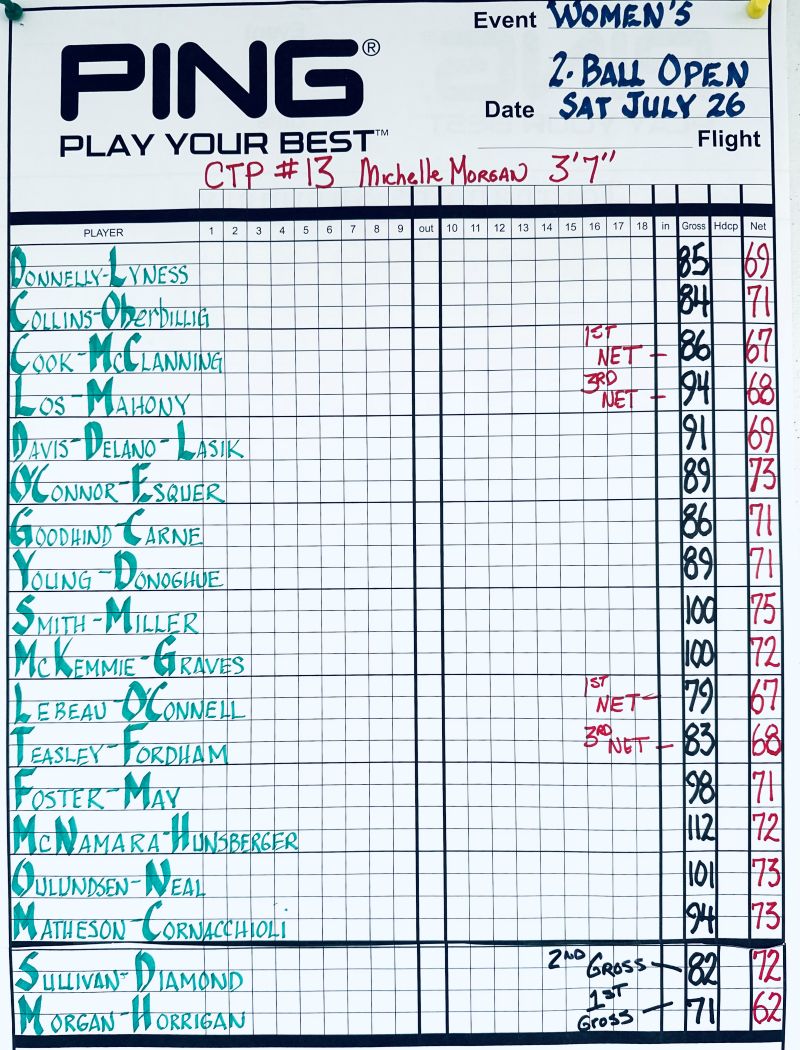 Event WOMEN'S
PING®
2-BALL OPEN
Date SAT JULY 26
PLAY YOUR BEST™
Flight
CTP #13 Michelle MORGAN 3'7"
PLAYER 1 2 3 4 5 6 7 8 9 out 10 11 12 13 14 15 16 17 18 in Gross Hdcp Net
DONNELLY-LYNESS 85 69
COLLINS-Oberbillig 84 71
COOK-McCLANNING 1ST NET - 86 67
LOS-MAHONY 3RD NET - 94 68
DAVIS-DELANO-LASIK 91 69
O'CONNOR-ESQUER 89 73
GOODHIND-CARNE 86 71
YOUNG-DONOGHUE 89 71
SMITH-MILLER 100 75
McKEMMIE-GRAVES 100 72
LEBEAU-O'CONNELL 1ST NET - 79 67
TEASLEY-FORDHAM 3RD NET - 83 68
FOSTER-MAY 98 71
McNAMARA-HUNSBERGER 112 72
OULUNDSEN-NEAL 101 73
MATHESON-CORNACCHIOLi 94 73
SULLIVAN-DIAMOND 2ND GROSS - 82 72
MORGAN-HORRIGAN 1ST GROSS - 71 62